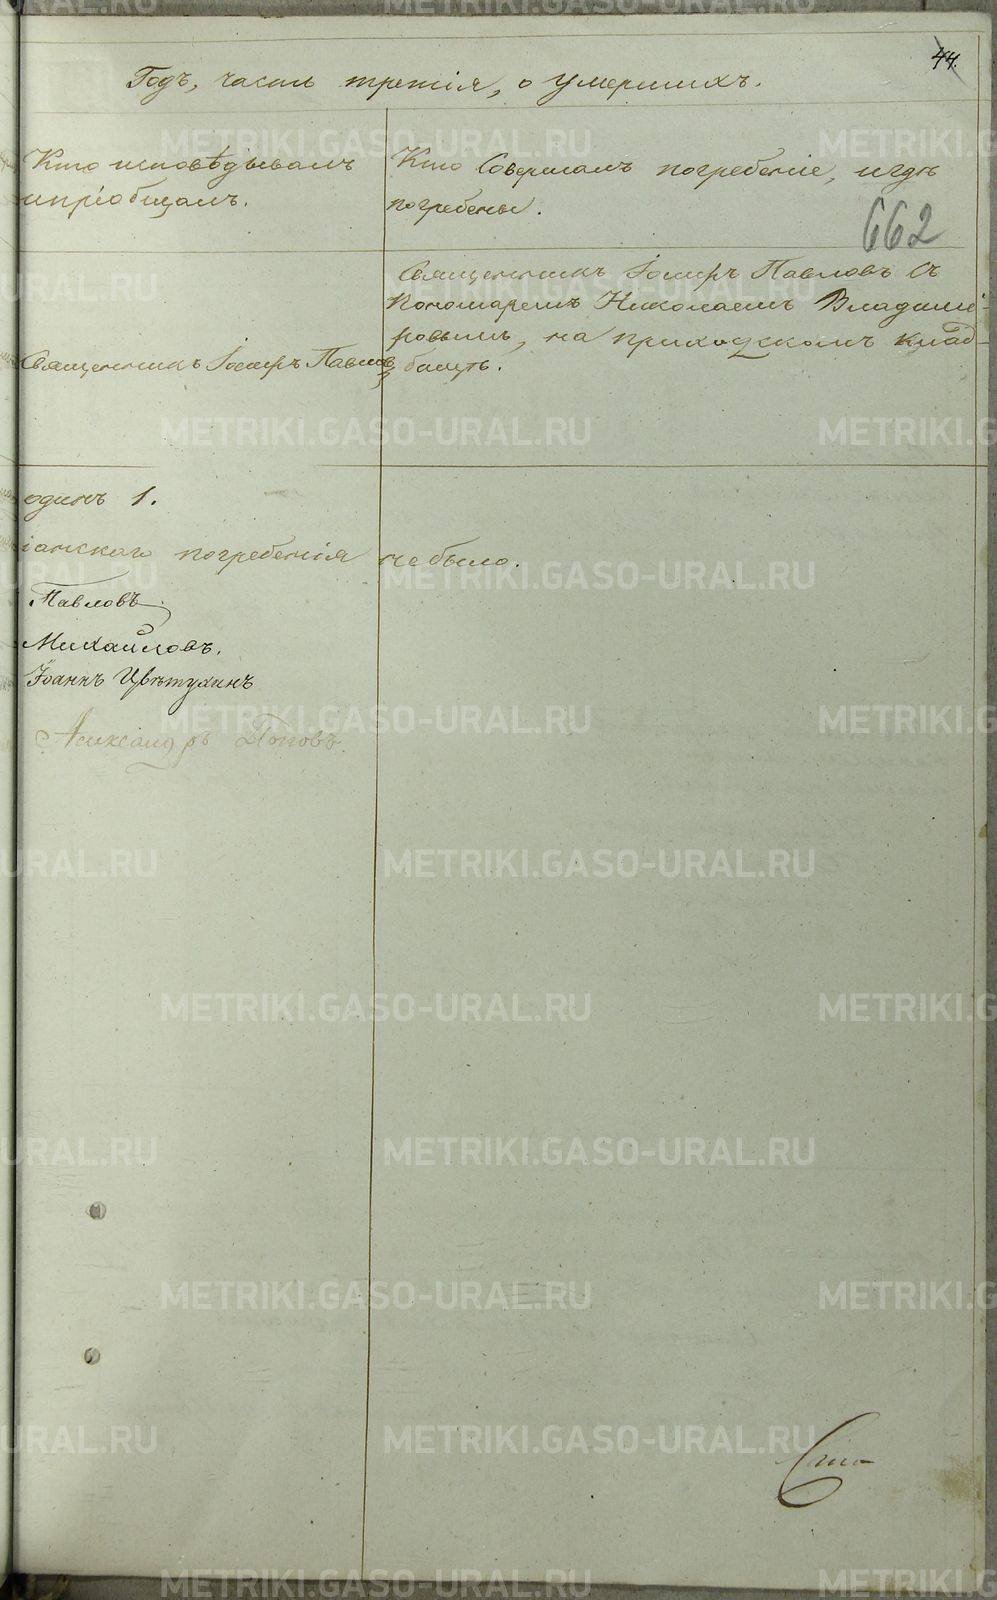 44.
Годъ, часть третія, о умершихъ.
Кто исповѣдывалъ
и пріобщалъ.
Кто совершалъ погребеніе, и гдѣ
погребены.
662
Священникъ Іосифъ Павловъ
Священникъ Іосифъ Павловъ съ
Пономаремъ Николаемъ Владими-
ровымъ, на приходскомъ клад-
бищѣ.
одинъ 1.
іанскаго погребенія не было.
Павловъ.
Михайловъ.
Іоаннъ Цвѣтухинъ
Александръ Поповъ.
METRIKI.GASO-URAL.RU